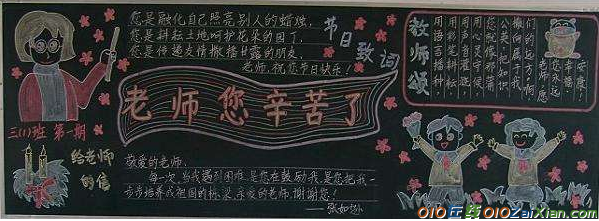 您是融化自己照亮别人的蜡烛,
您是耕耘土地呵护花朵的园丁,
您是传递友情撒播甘露的朋友,
老师,祝您节日快乐!
节日致词
老师您辛苦了
三(1)班 第一期
给老师的信
敬爱的老师,
每一次,当我遇到困难,是您在鼓励我,是您把我一
步步培养成祖国的栋梁,亲爱的老师,谢谢您!
——张如逊
教师颂
用语言播种,
用彩笔耕耘
安康!
幸福,
010在线010ZaiXian.com